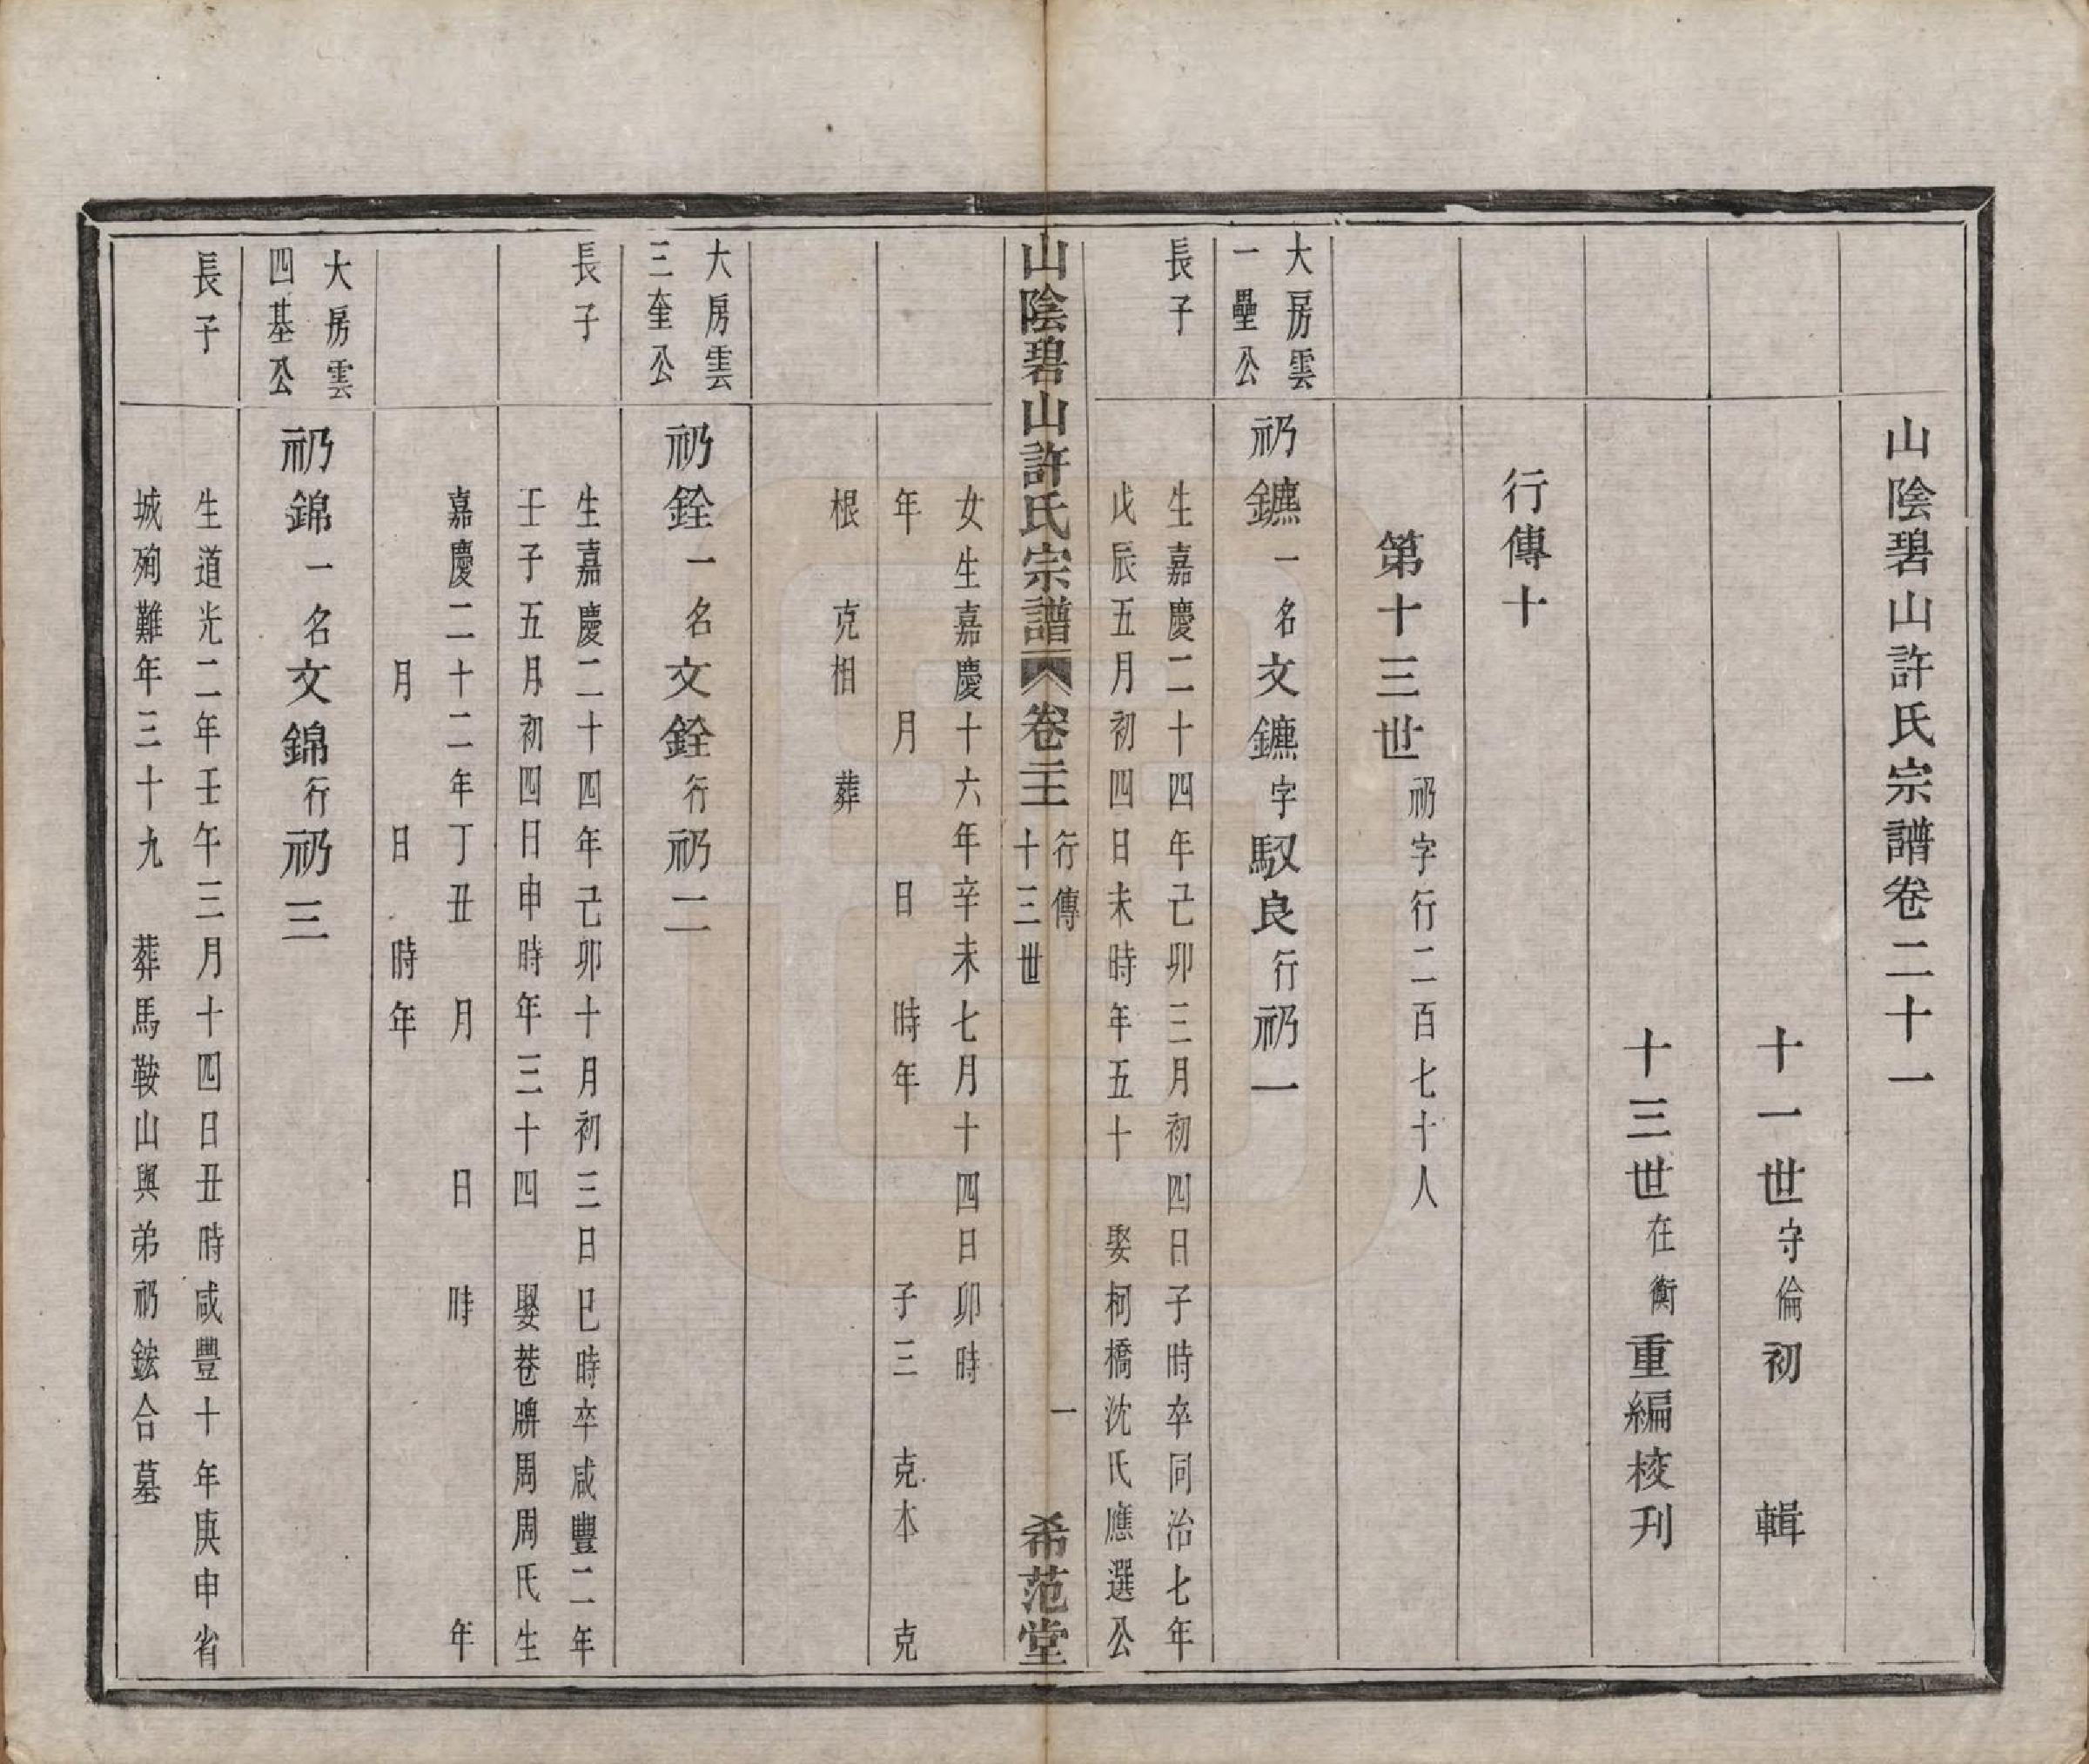 山陰碧山許氏宗譜卷二十一
十一世守倫初　輯
十三世在衡重編校刊
行傳十
第十三世礽字行二百七十人
大房雲
一壘公
長子
礽鑣一名文鑣字馭良行礽一
生嘉慶二十四年己卯三月初四日子時卒同治七年
戊辰五月初四日未時年五十　娶柯橋沈氏應選公
山陰碧山許氏宗譜　卷二十一　行傳　十三世　一　希范堂
女生嘉慶十六年辛未七月十四日卯時
年　月　日　時年　子三　克本　克
根　克相　葬
大房雲
三奎公
長子
礽銓一名文銓行礽二
生嘉慶二十四年己卯十月初三日巳時卒咸豐二年
壬子五月初四日申時年三十四　娶巷牌周周氏生
嘉慶二十二年丁丑　月　日　時　年
月　日　時年
大房雲
四基公
長子
礽錦一名文錦行礽三
生道光二年壬午三月十四日丑時咸豐十年庚申省
城殉難年三十九　葬馬鞍山與弟礽鋐合墓